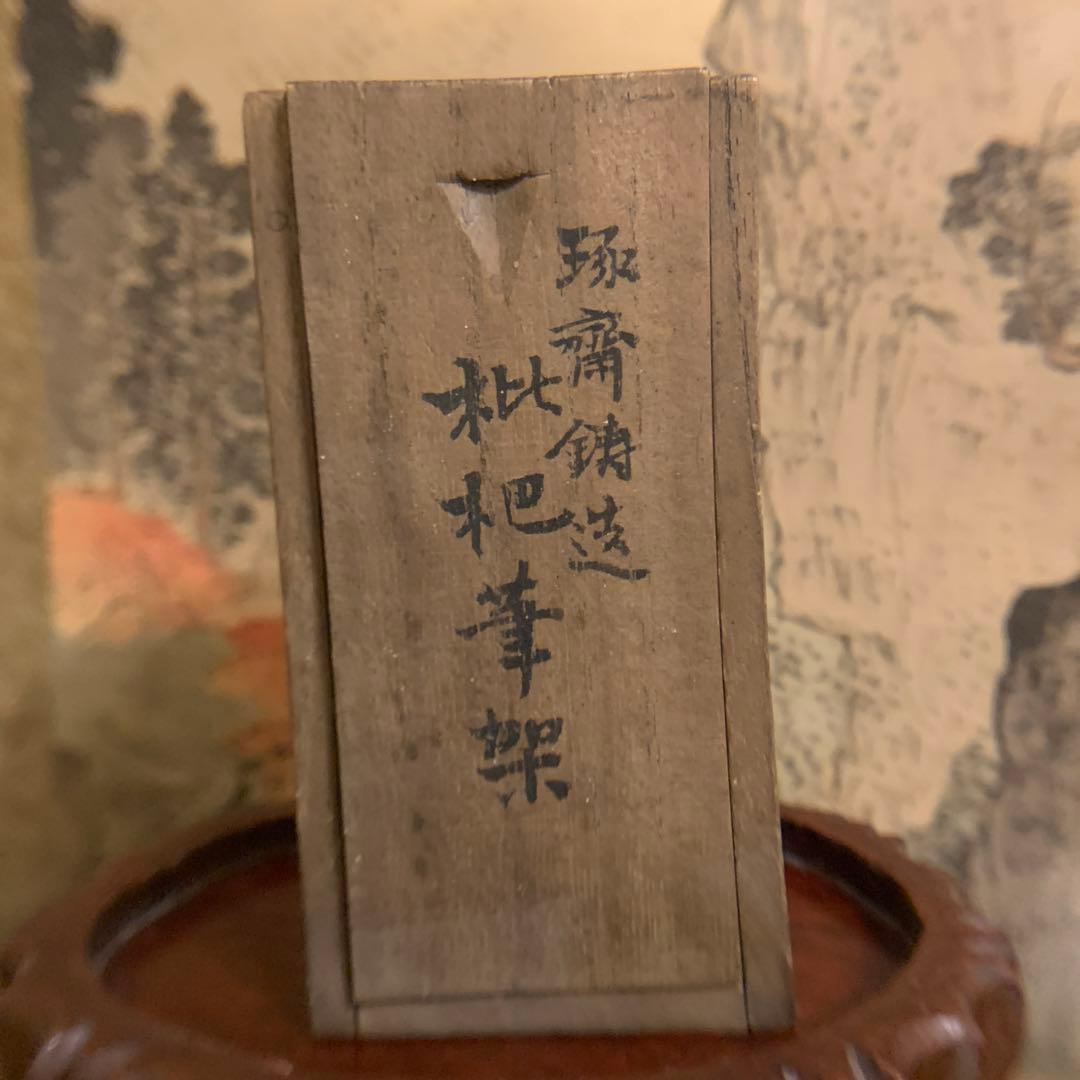 琢齋鋳造
枇杷筆架